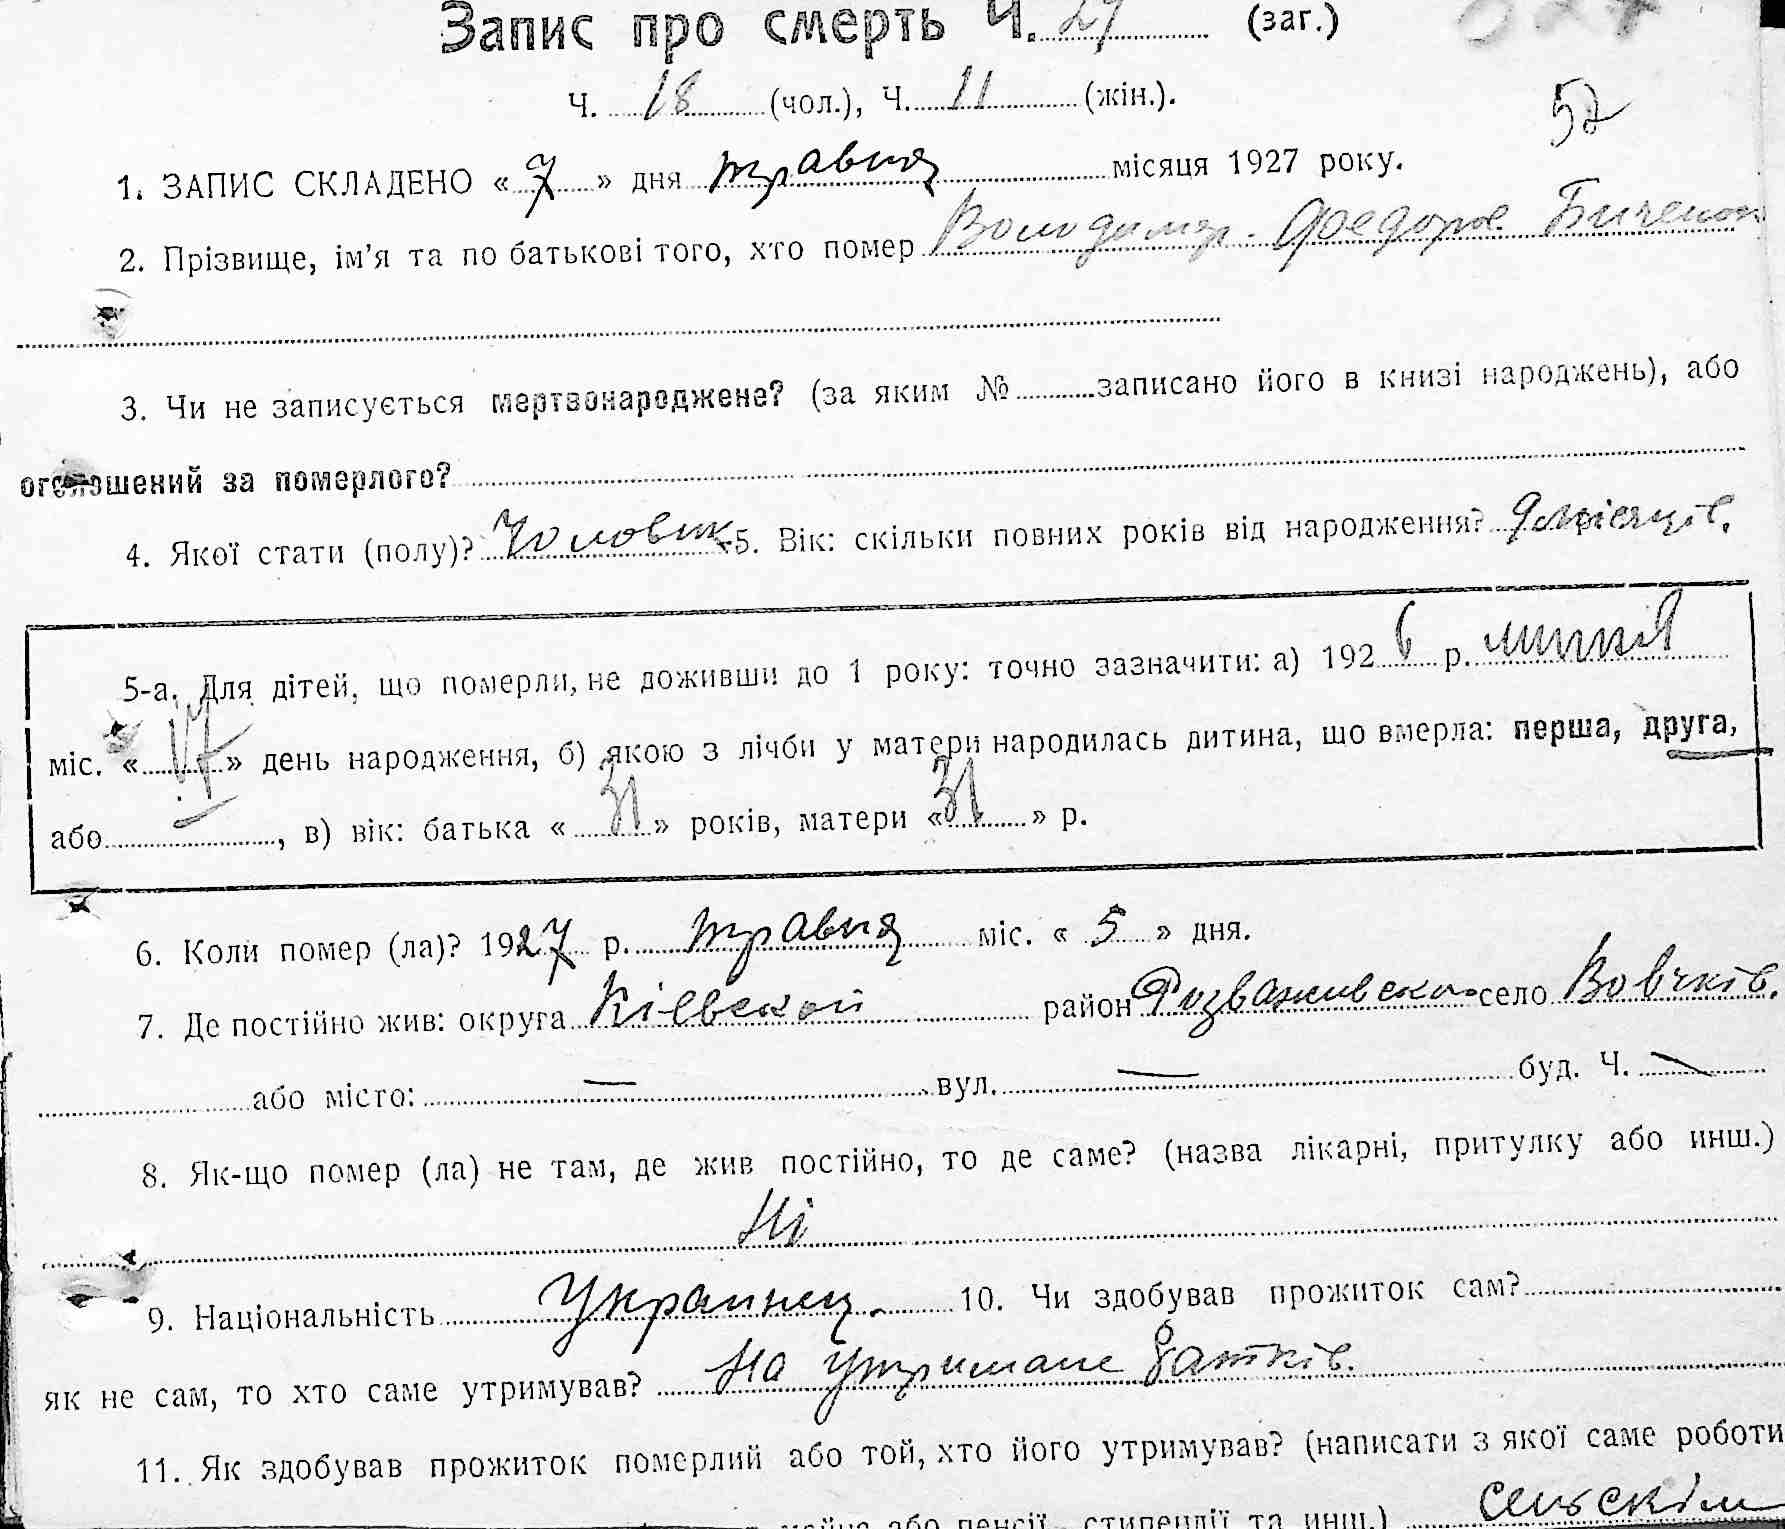 Запис про смерть Ч. 29 (заг.)
Ч. 18 (чол.), Ч. 11 (жін.).
52
1. ЗАПИС СКЛАДЕНО « 7 » дня травня місяця 1927 року.
2. Прізвище, ім'я та по батькові того, хто помер Володимир. Федоров. Биченок
3. Чи не записується мертвонароджене? (за яким № записано його в книзі народжень), або
оголошений за померлого?
4. Якої стати (полу)? Чоловік 5. Вік: скільки повних років від народження? 9 місяців.
5-а. Для дітей, що померли, не доживши до 1 року: точно зазначити: а) 1926 р. липня
міс. « 17 » день народження, б) якою з лічби у матери народилась дитина, що вмерла: перша, друга,
або , в) вік: батька « 31 » років, матери « 31 » р.
6. Коли помер (ла)? 1927 р. травня міс. « 5 » дня.
7. Де постійно жив: округа Київской район Розваживско. село Вовчків.
або місто: — вул. — буд. Ч. —
8. Як-що помер (ла) не там, де жив постійно, то де саме? (назва лікарні, притулку або инш.)
Ні
9. Національність Украинец. 10. Чи здобував прожиток сам?
як не сам, то хто саме утримував? На утримане батків.
11. Як здобував прожиток померлий або той, хто його утримував? (написати з якої саме роботи
майна або пенсії, стипендії та инш.) сельскім